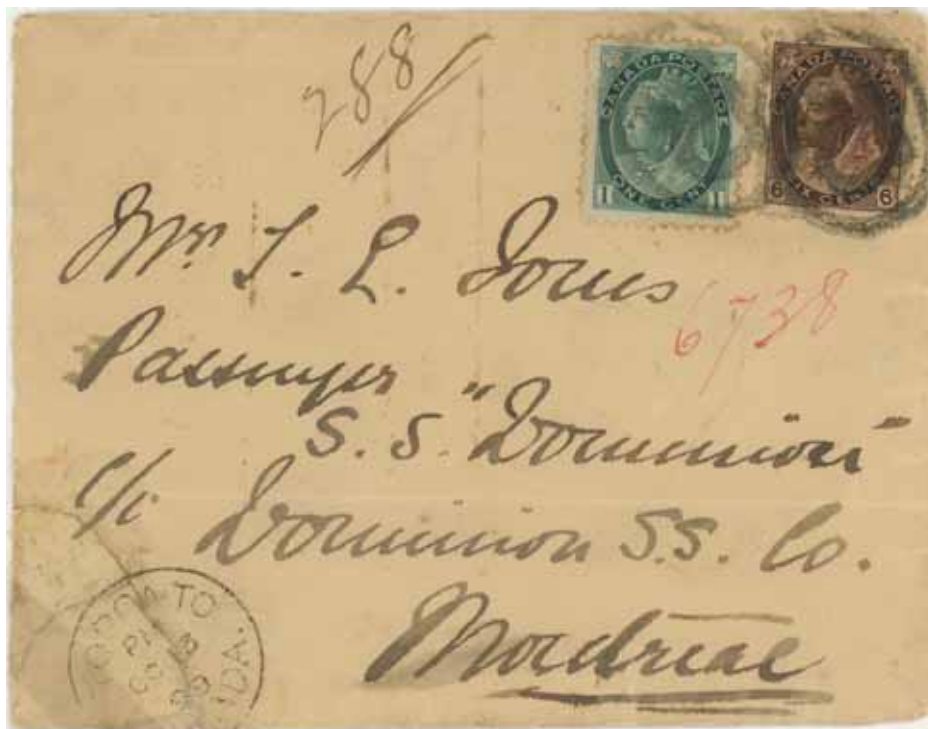 288/
CANADA POSTAGE
1 ONE CENT 1
CANADA POSTAGE
6 SIX CENTS 6
Mr. J. L. Jones
6738
Passenger
S. S. "Dominion"
c/c Dominion S.S. Co.
Montreal
TORONTO